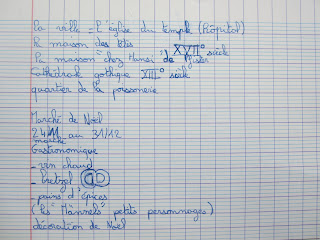 La ville = l'église du temple (Hôpital)
La maison des têtes
XXVII° siècle
La maison "chez Hansi" de
Cathédrale gothique XIII° siècle
quartier de la poissonerie
Marché de Noël
24/11 au 31/12
marché
Gastronomique
- vin chaud
- bretzel
- pains d'épices
(les "Männels" petits personnages)
décoration de Noël